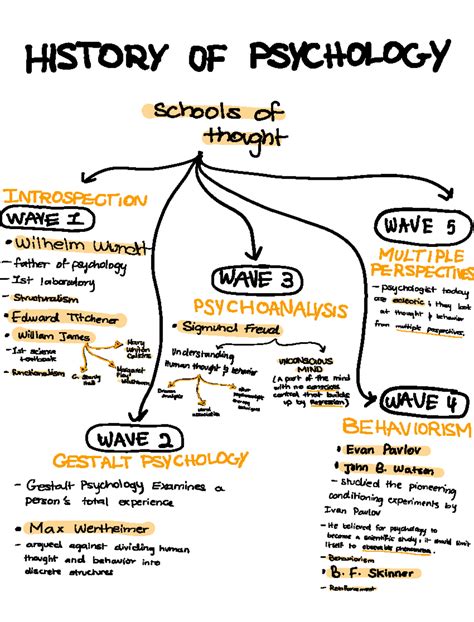 HISTORY OF PSYCHOLOGY
schools of
thought
INTROSPECTION
WAVE 1
• Wilhelm Wundt
- father of psychology
- 1st laboratory
- Structuralism
• Edward Titchener
• William James
- 1st science
textbook
- Functionalism
G. Stanly
Hall
Mary
Whiton
Calkins
Margaret
Floy
Washburn
WAVE 2
GESTALT PSYCHOLOGY
- Gestalt Psychology Examines a
person's total experience
• Max Wertheimer
- argued against dividing human
thought and behavior into
discrete structures
WAVE 3
PSYCHOANALYSIS
• Sigmund Freud
Understanding
human thought & behavior
Dream
Analysis
word
association
UNCONSCIOUS
MIND
(A part of the mind
with no conscious
control that builds
up by repression)
WAVE 4
BEHAVIORISM
• Evan Pavlov
• John B. Watson
- studied the pioneering
conditioning experiments by
Ivan Pavlov
- He believed for psychology to
become a scientific study, it should limit
itself to observable phenomena.
- Behaviorism
• B. F. Skinner
- Reinforcement
WAVE 5
MULTIPLE
PERSPECTIVES
- psychologist today
are eclectic; they look
at thought & behavior
from multiple perspectives.